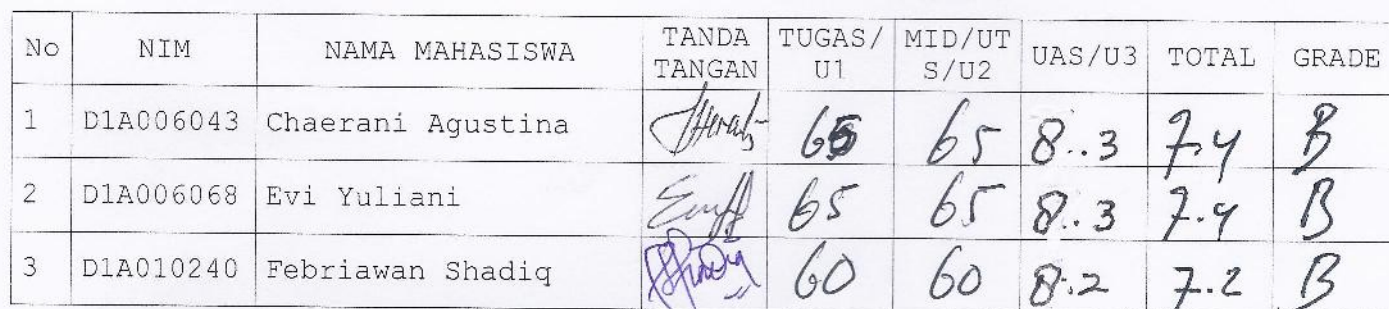 No NIM NAMA MAHASISWA TANDA TANGAN TUGAS/ U1 MID/UT S/U2 UAS/U3 TOTAL GRADE
1 D1A006043 Chaerani Agustina 65 65 8..3 7.4 B
2 D1A006068 Evi Yuliani 65 65 8..3 7.4 B
3 D1A010240 Febriawan Shadiq 60 60 8.2 7.2 B